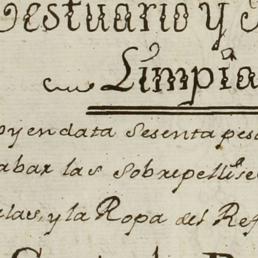 Vestuario y
Limpia
oy en data Sesenta pes
abar las Sobrepellise
las, y la Ropa del Ref